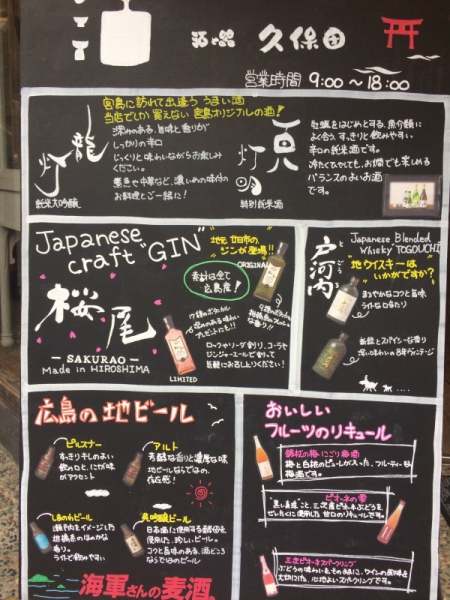 酒と器 久保田
営業時間 9:00〜18:00
宮島に訪れて出逢う うまい酒
当店でしか買えない 宮島オリジナルの酒!
龍灯
純米大吟醸
深みのある、旨味と香りが
しっかりの辛口
じっくりと味わいながらお楽しみ
ください。
お料理とご一緒に!
灯明
特別純米酒
牡蠣をはじめとする、魚介類に
よく合う、すっきりと飲みやすい
辛口の純米酒です。
冷たくても、お燗でも楽しめる
バランスのよいお酒
です。
Japanese
craft "GIN"
桜尾
- SAKURAO -
Made in HIROSHIMA
地元 廿日市の
ジンが登場!!
ORIGINAL
素材は全て
広島産!
LIMITED
17種のボタニカル
味わい
プレゼントにも!!
9種のボタニカル
香り!!
ロックやソーダ割り、コーラや
ジンジャーエールで割って
気軽にお召し上りください!
戸河内
とごうち
Japanese Blended
Whisky TOGOUCHI
"地ウイスキーは
いかがですか?"
まろやかなコクと旨味
ライトな口当たり
深い味わいの8年ヴィンテージ
広島の地ビール
ピルスナー
すっきりキレのよい
飲み口と、にが味が
アクセント
アルト
芳醇な香りと濃厚な味
地ビールならではの、
存在感!
しまのわビール
瀬戸内をイメージした
柑橘系のほのかな
香り。
ライトで飲みやすい
呉吟醸ビール
日本酒に使用する酵母を
使用した、珍しいビール。
コクと旨味のある、酒どころ
ならではのビール
海軍さんの麦酒。
おいしい
フルーツのリキュール
梅と白桃のピューレが入った、フルーティーな
梅酒です。
ピオーネの雫
"黒い真珠"こと、三次産ピオーネぶどうを
ぜいたくに使用した 甘口のリキュールです。
三次ピオーネスパークリング
ぶどうの味わいをそのままに、ワインの風味を
大切にした、心地よいスパークリングです。